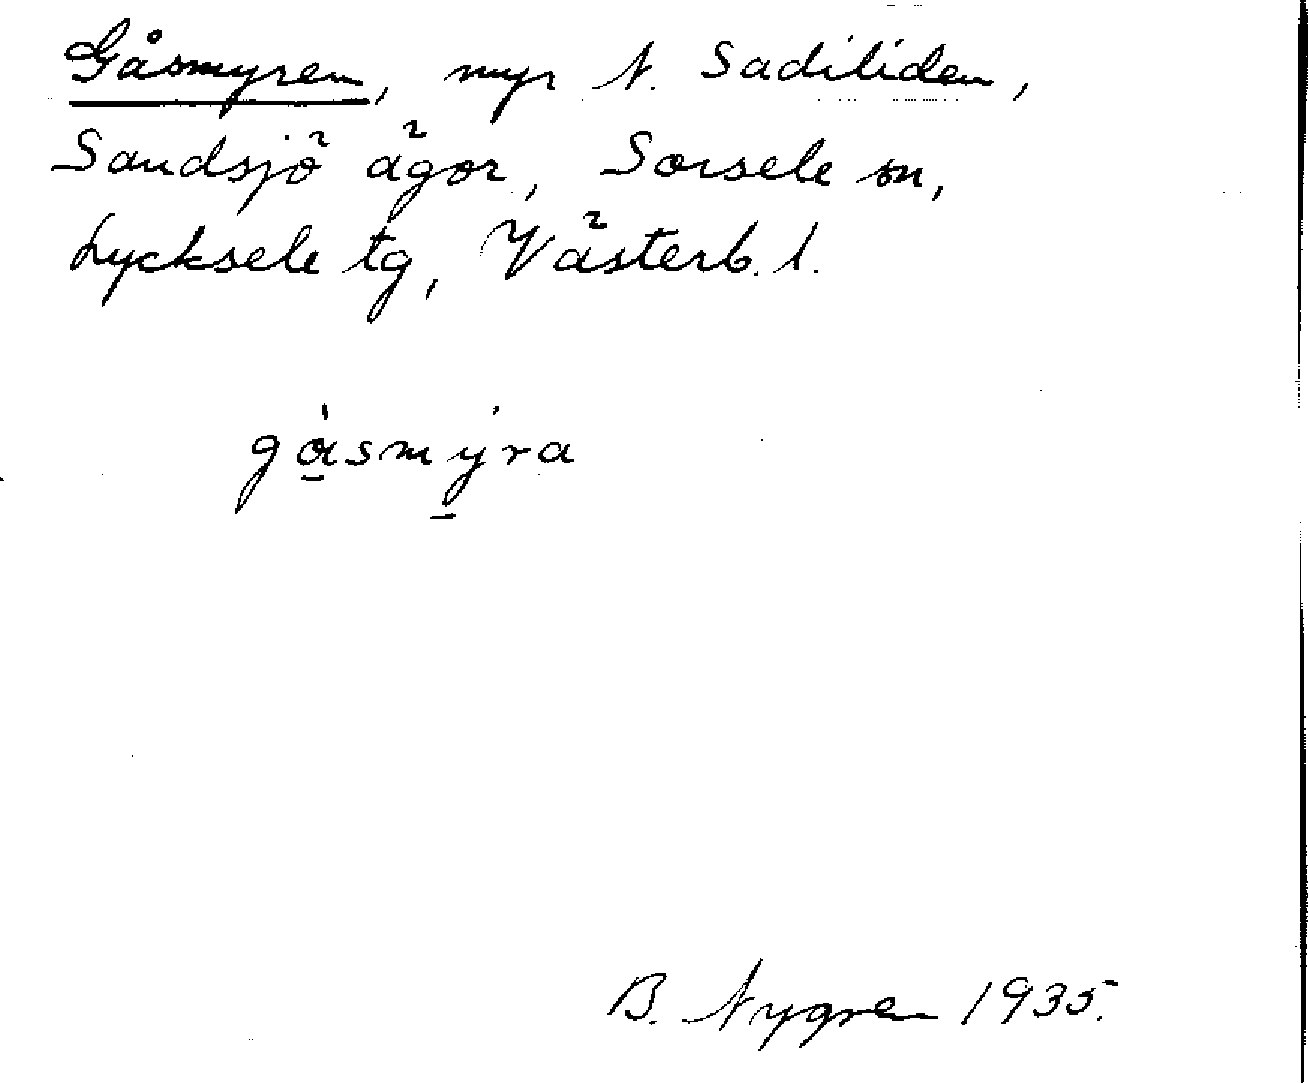 Gåsmyren, myr N. Sadiliden,
Sandsjö ägor, Sorsele sn,
Lycksele tg, Västerb. l.
gåsmýra
B. Nygren 1935.